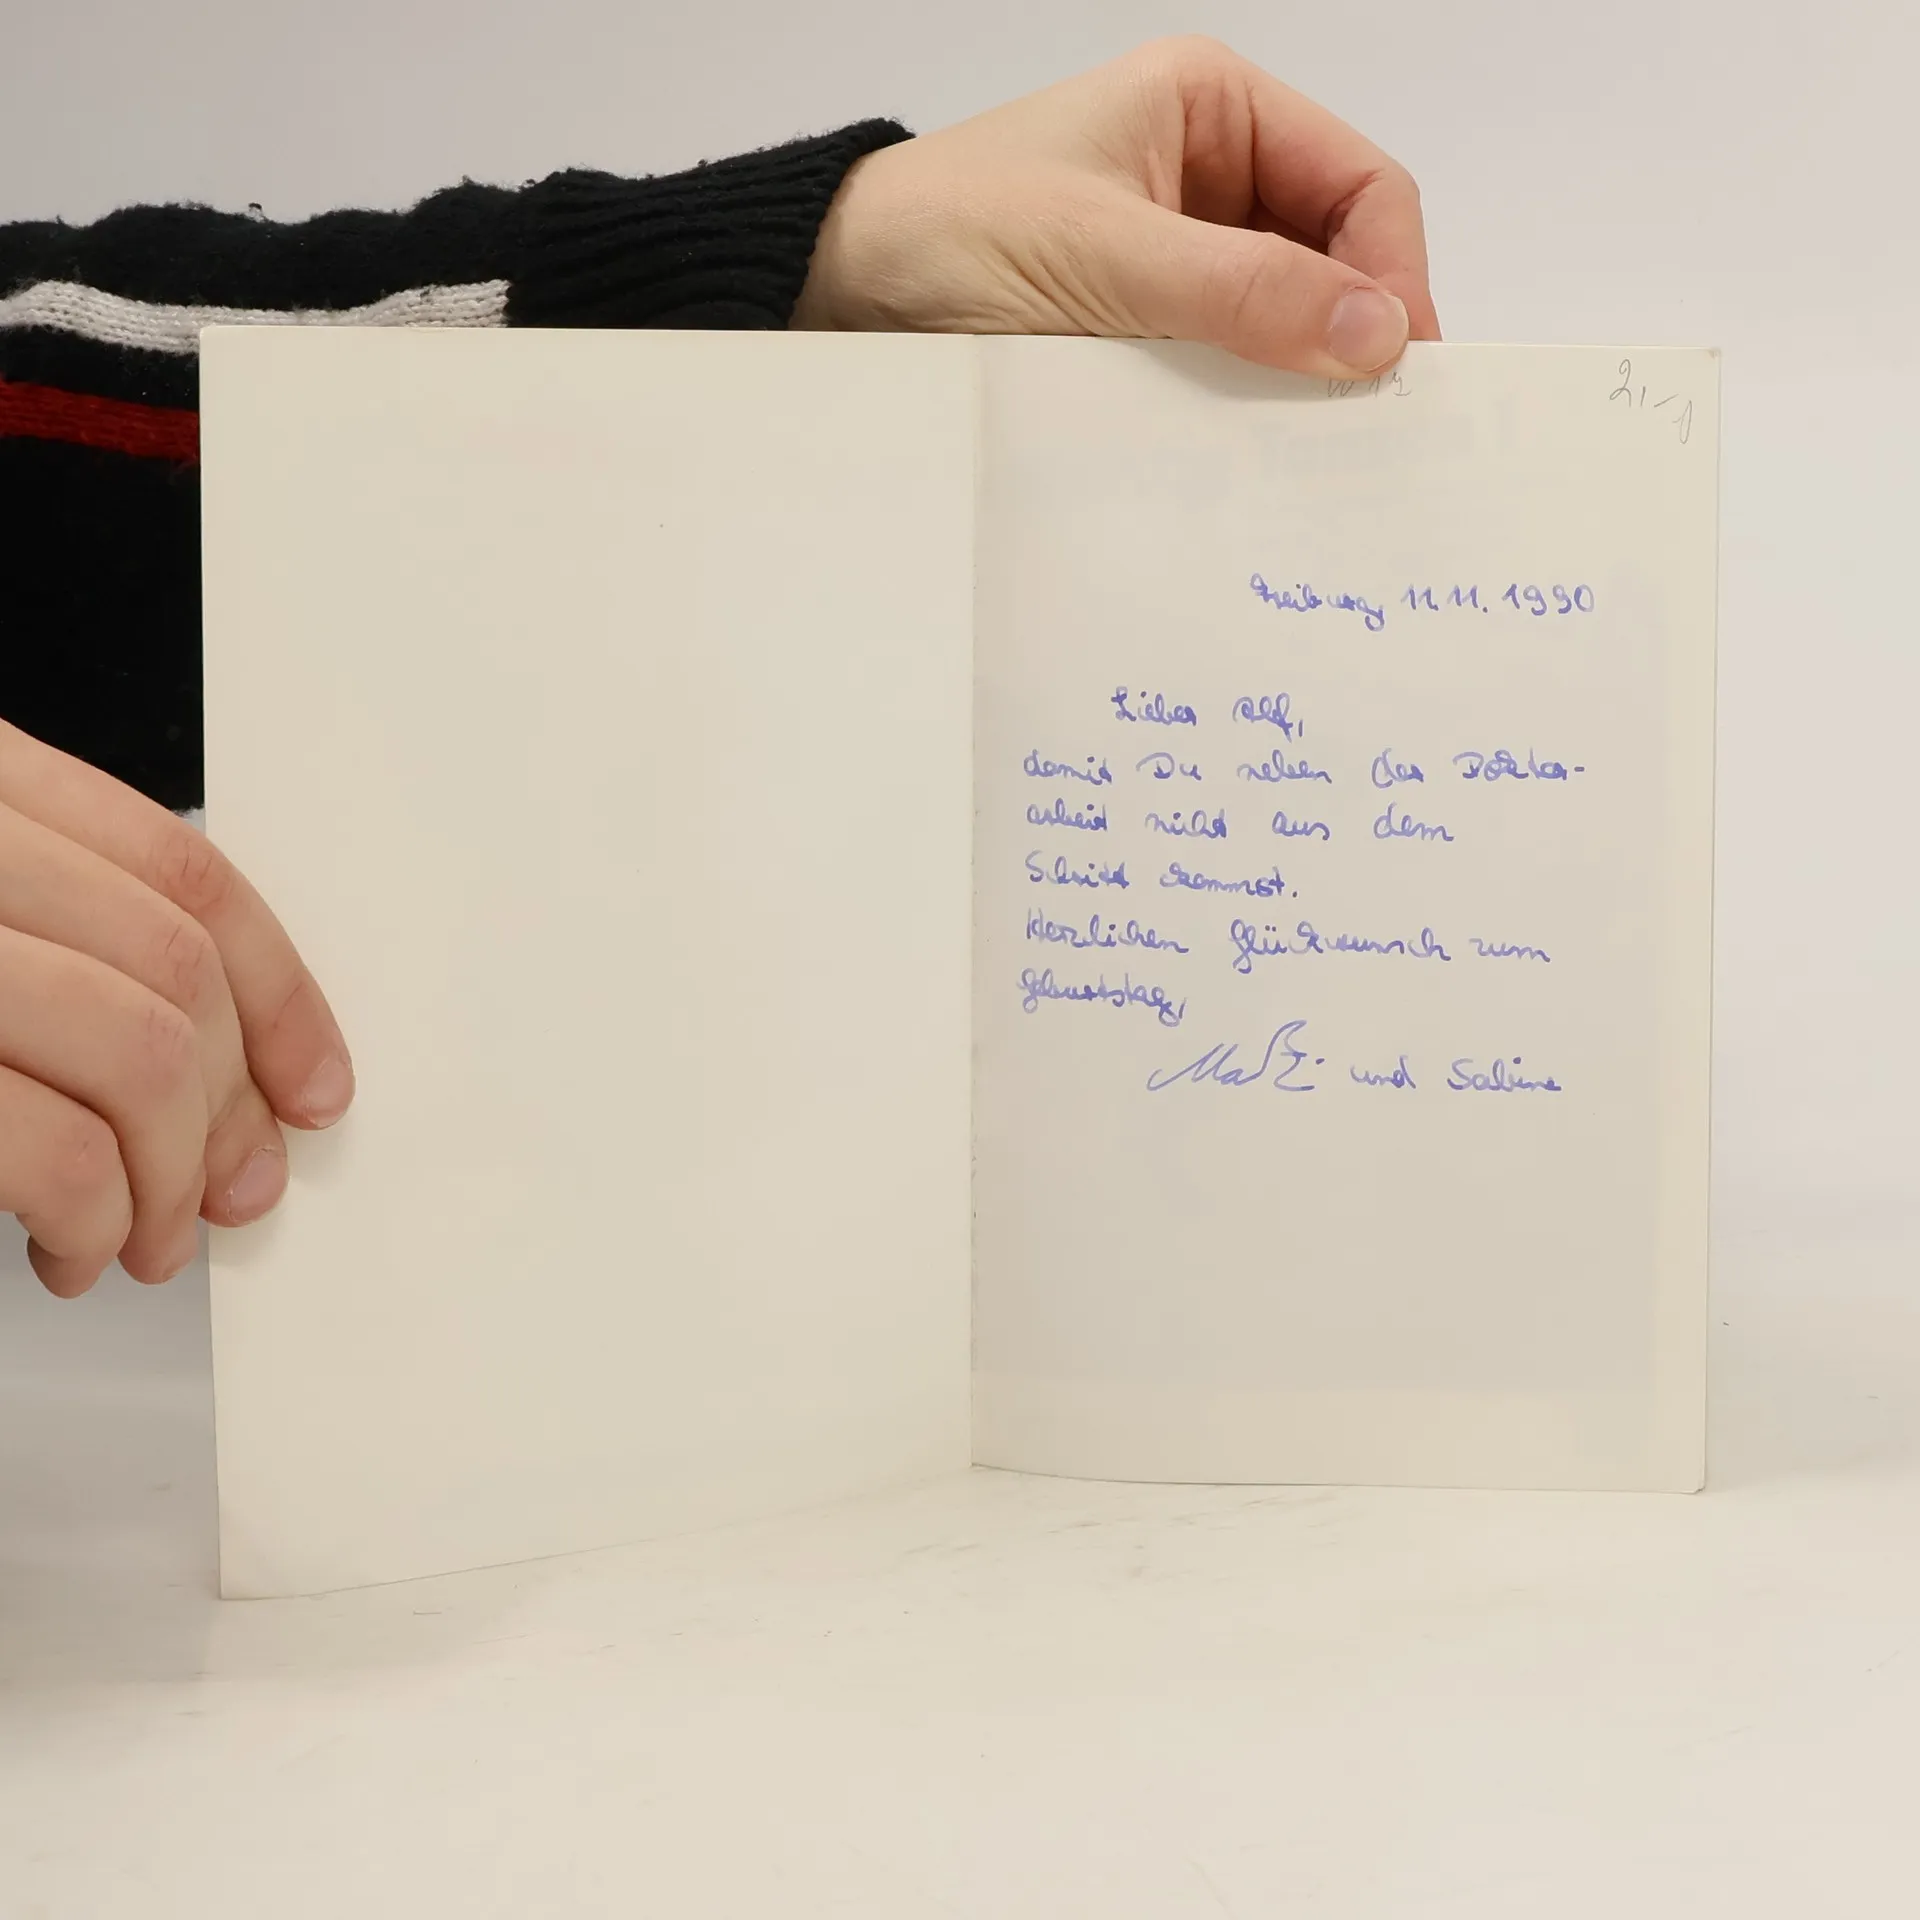 2,-
Freiburg, 11.11.1990
Lieber Alf,
damit Du neben der Doktor-
arbeit nicht aus dem
Schritt kommst.
Herzlichen Glückwunsch zum
Geburtstag,
und Sabine